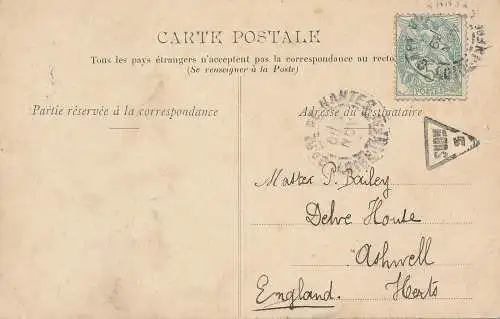 CARTE POSTALE
Tous les pays étrangers n'acceptent pas la correspondance au recto
(Se renseigner à la Poste)
Partie réservée à la correspondance
Adresse du destinataire
NANTES
POSTES
Master P. Bailey
Delve House
Ashwell
England. Herts